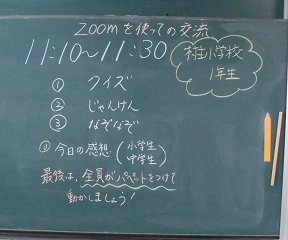 zoomを使っての交流
11:10～11:30
村小学校
1年生
① クイズ
② じゃんけん
③ なぞなぞ
◎ 今日の感想 (小学生 中学生)
最後は、全員がパペットをつけて
動かしましょう!